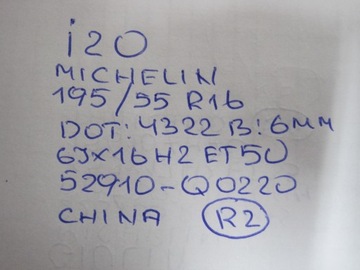 i20
MICHELIN
195/55 R16
DOT: 4322 B: 6MM
6Jx16 H2 ET50
52910-Q0220
CHINA R2